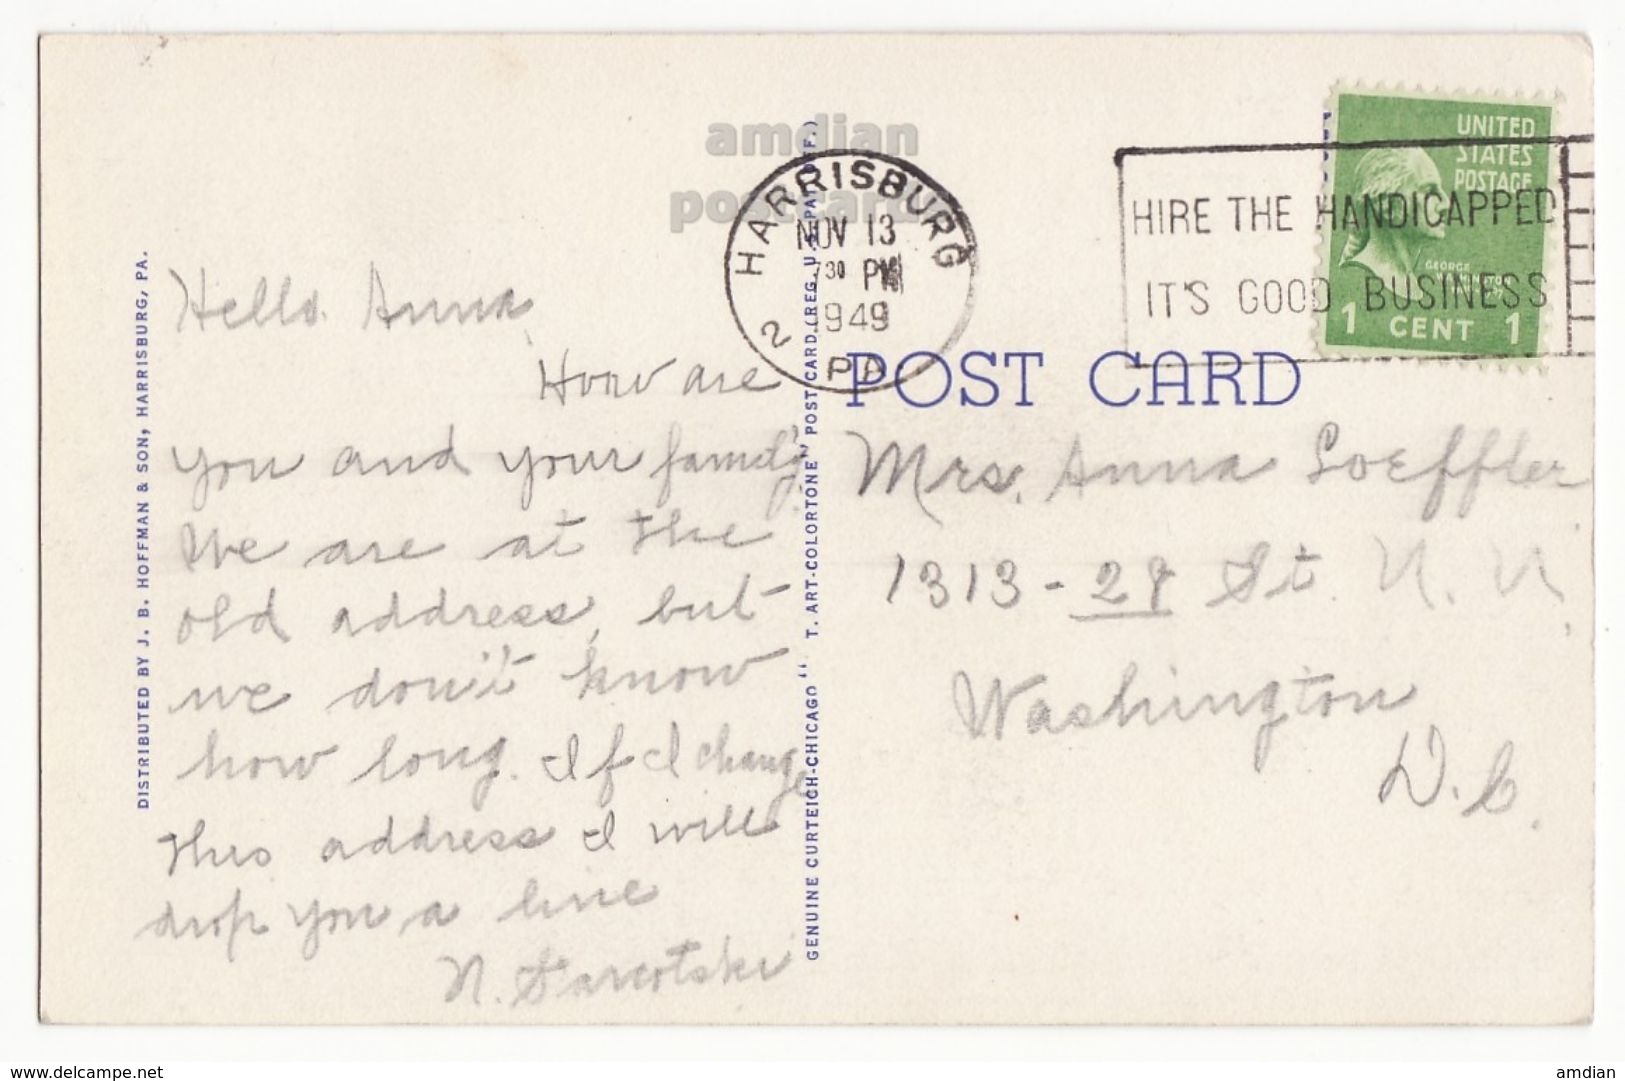 amdian
postcard
HARRISBURG
NOV 13
7 30 PM
1949
2
PA
HIRE THE HANDICAPPED
IT'S GOOD BUSINESS
UNITED
STATES
POSTAGE
GEORGE
WASHINGTON
1 CENT 1
POST CARD
DISTRIBUTED BY J. B. HOFFMAN & SON, HARRISBURG, PA.
Hello Anna
How are
you and your family.
We are at the
old address, but
we don't know
how long. If I change
this address I will
drop you a line
N.
GENUINE CURTEICH-CHICAGO "C. T. ART-COLORTONE" POST CARD (REG. U. S. PAT. OFF.)
Mrs. Anna Loeffler
1313 - 27 St. N. W.
Washington
D. C.
www.delcampe.net
amdian